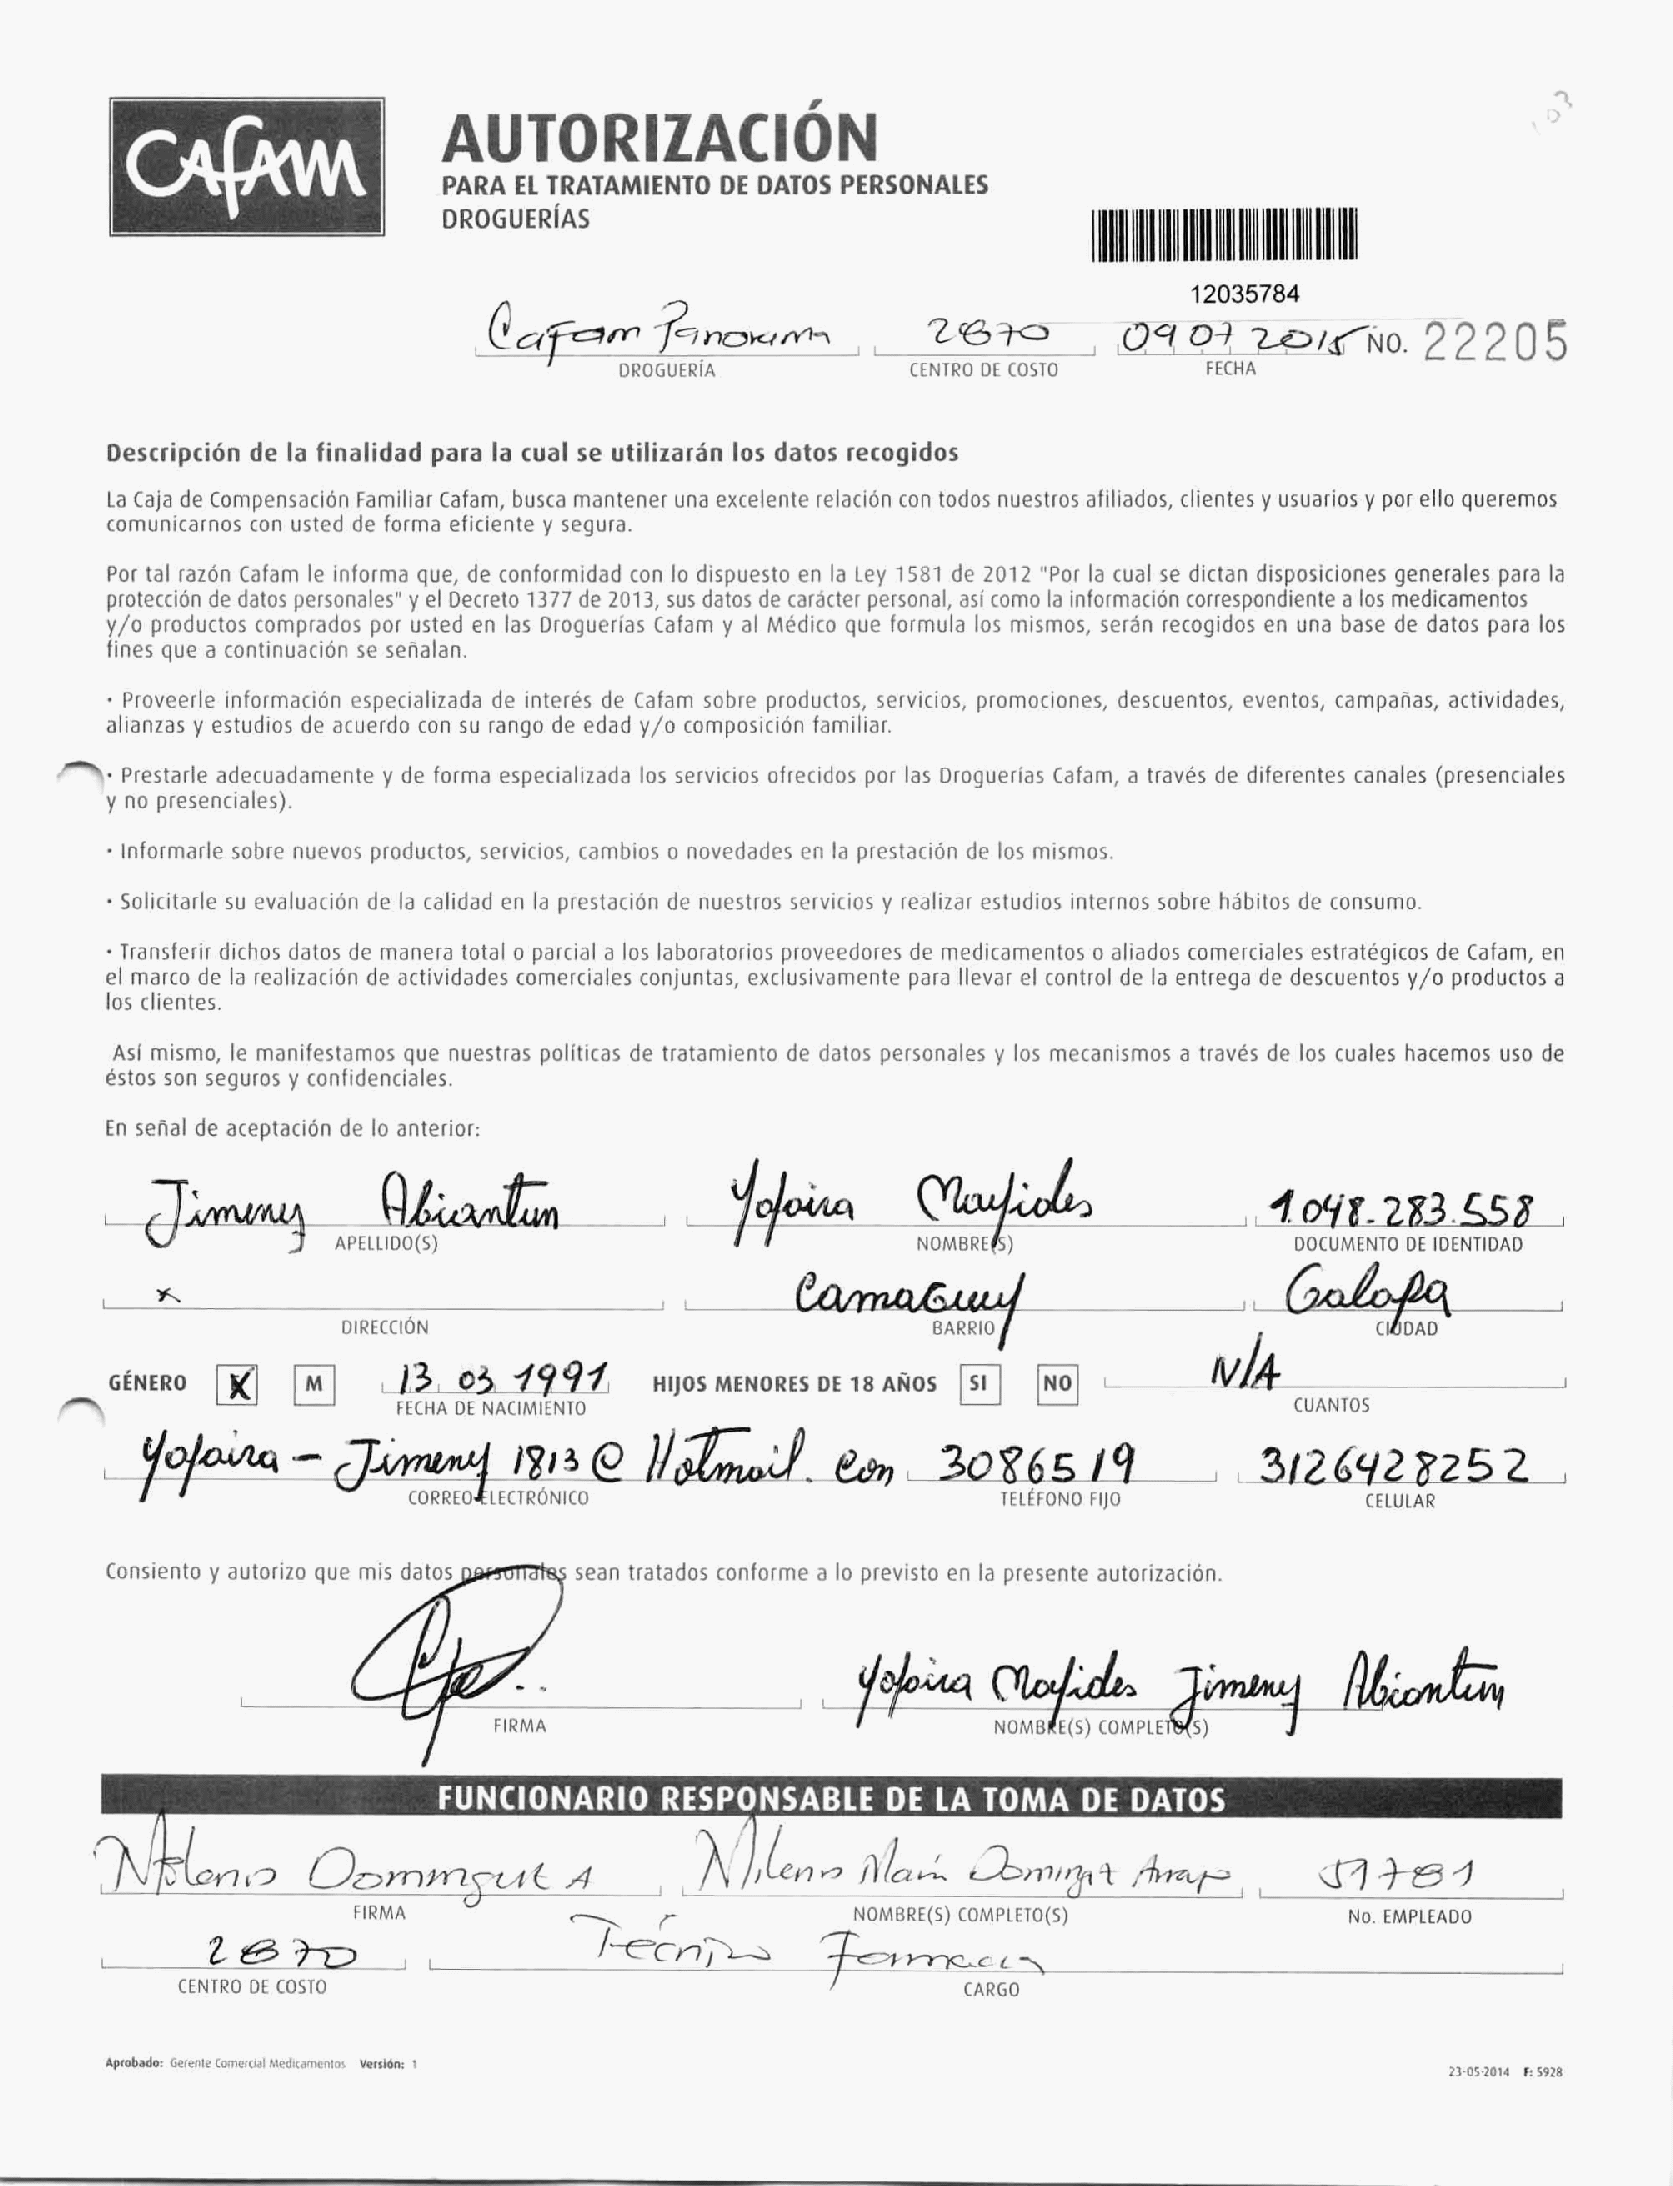 CAFAM
AUTORIZACIÓN
PARA EL TRATAMIENTO DE DATOS PERSONALES
DROGUERÍAS
12035784
Cafam Panorama 2870 09 07 2015 NO. 22205
DROGUERÍA CENTRO DE COSTO FECHA
Descripción de la finalidad para la cual se utilizarán los datos recogidos
La Caja de Compensación Familiar Cafam, busca mantener una excelente relación con todos nuestros afiliados, clientes y usuarios y por ello queremos
comunicarnos con usted de forma eficiente y segura.
Por tal razón Cafam le informa que, de conformidad con lo dispuesto en la Ley 1581 de 2012 "Por la cual se dictan disposiciones generales para la
protección de datos personales" y el Decreto 1377 de 2013, sus datos de carácter personal, así como la información correspondiente a los medicamentos
y/o productos comprados por usted en las Droguerías Cafam y al Médico que formula los mismos, serán recogidos en una base de datos para los
fines que a continuación se señalan.
· Proveerle información especializada de interés de Cafam sobre productos, servicios, promociones, descuentos, eventos, campañas, actividades,
alianzas y estudios de acuerdo con su rango de edad y/o composición familiar.
· Prestarle adecuadamente y de forma especializada los servicios ofrecidos por las Droguerías Cafam, a través de diferentes canales (presenciales
y no presenciales).
· Informarle sobre nuevos productos, servicios, cambios o novedades en la prestación de los mismos.
· Solicitarle su evaluación de la calidad en la prestación de nuestros servicios y realizar estudios internos sobre hábitos de consumo.
· Transferir dichos datos de manera total o parcial a los laboratorios proveedores de medicamentos o aliados comerciales estratégicos de Cafam, en
el marco de la realización de actividades comerciales conjuntas, exclusivamente para llevar el control de la entrega de descuentos y/o productos a
los clientes.
Así mismo, le manifestamos que nuestras políticas de tratamiento de datos personales y los mecanismos a través de los cuales hacemos uso de
éstos son seguros y confidenciales.
En señal de aceptación de lo anterior:
Jimenez Abiantun Yofaira Mayides 1.048.283.558
APELLIDO(S) NOMBRE(S) DOCUMENTO DE IDENTIDAD
x Camaguey Galapa
DIRECCIÓN BARRIO CIUDAD
GÉNERO X M 13 03 1991 HIJOS MENORES DE 18 AÑOS SI NO N/A
FECHA DE NACIMIENTO CUANTOS
Yofaira - Jimenez 1813 @ Hotmail. Com 3086519 3126428252
CORREO ELECTRÓNICO TELÉFONO FIJO CELULAR
Consiento y autorizo que mis datos personales sean tratados conforme a lo previsto en la presente autorización.
Yofaira Mayides Jimenez Abiantun
FIRMA NOMBRE(S) COMPLETO(S)
FUNCIONARIO RESPONSABLE DE LA TOMA DE DATOS
Milena Milena 51781
FIRMA NOMBRE(S) COMPLETO(S) No. EMPLEADO
2870 Técnico Farmacia
CENTRO DE COSTO CARGO
Aprobado: Gerente Comercial Medicamentos Versión: 1
23-05-2014 F: 5928